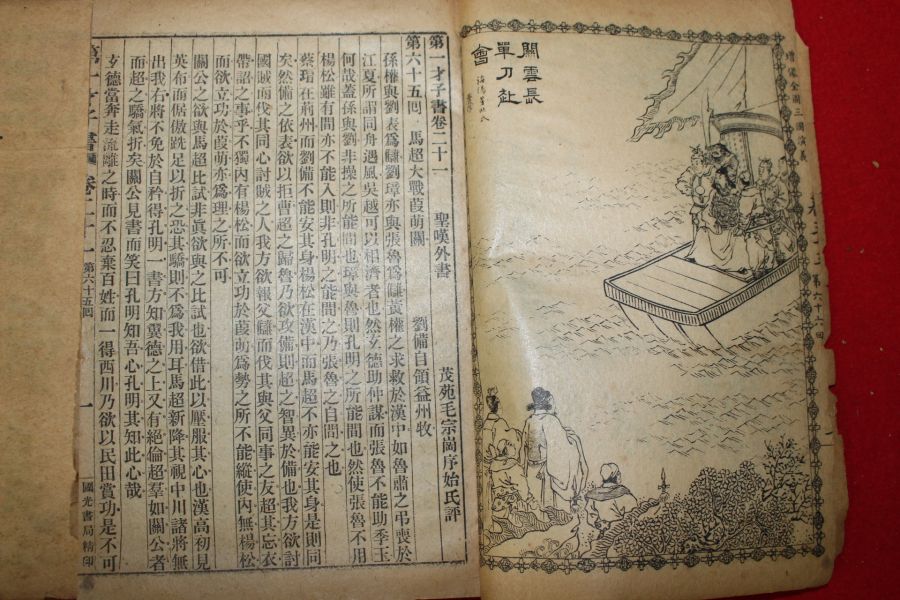 增像全圖三國演義
關雲長
單刀赴
會
第一才子書卷二十一 聖嘆外書 茂苑毛宗崗序始氏評
第六十五回 馬超大戰葭萌關 劉備自領益州牧
孫權與劉表爲讎劉璋亦與張魯爲讎黃權之求救於漢中如魯肅之弔喪於
江夏所謂同舟遇風吳越可以相濟者也然玄德助仲謀而張魯不能助季玉
何哉蓋孫與劉非操之所能間也璋與魯則孔明之所能間也然使張魯不用
楊松雖有間亦不能入則非孔明之能間之乃張魯之自間之也
蔡瑁在荊州而劉備不能安其身楊松在漢中而馬超不亦能安其身是則同
矣然備之依表欲以拒曹超之歸魯乃欲攻備則超之智異於備也我方欲討
國賊而伐其同心討賊之人我方欲報父讎而伐其與父同事之友超其忘衣
帶詔之事乎不獨內有楊松而欲立功於葭萌爲勢之所不能縱使內無楊松
而欲立功於葭萌亦爲理之所不可
關公之欲與馬超比試非眞欲與之比試也欲借此以壓服其心也漢高初見
英布而倨傲跣足以折之恐其驕則不爲我用耳馬超新降其視中川諸將無
出我右將不免於自矜得孔明一書方知翼德之上又有絕倫超羣如關公者
而超之驕氣折矣關公見書而笑曰孔明知吾心孔明其知此心哉
玄德當奔走流離之時而不忍棄百姓而一得西川乃欲以民田賞功是不可
第一才子書 卷二十一 第六十五回 一 國光書局精印